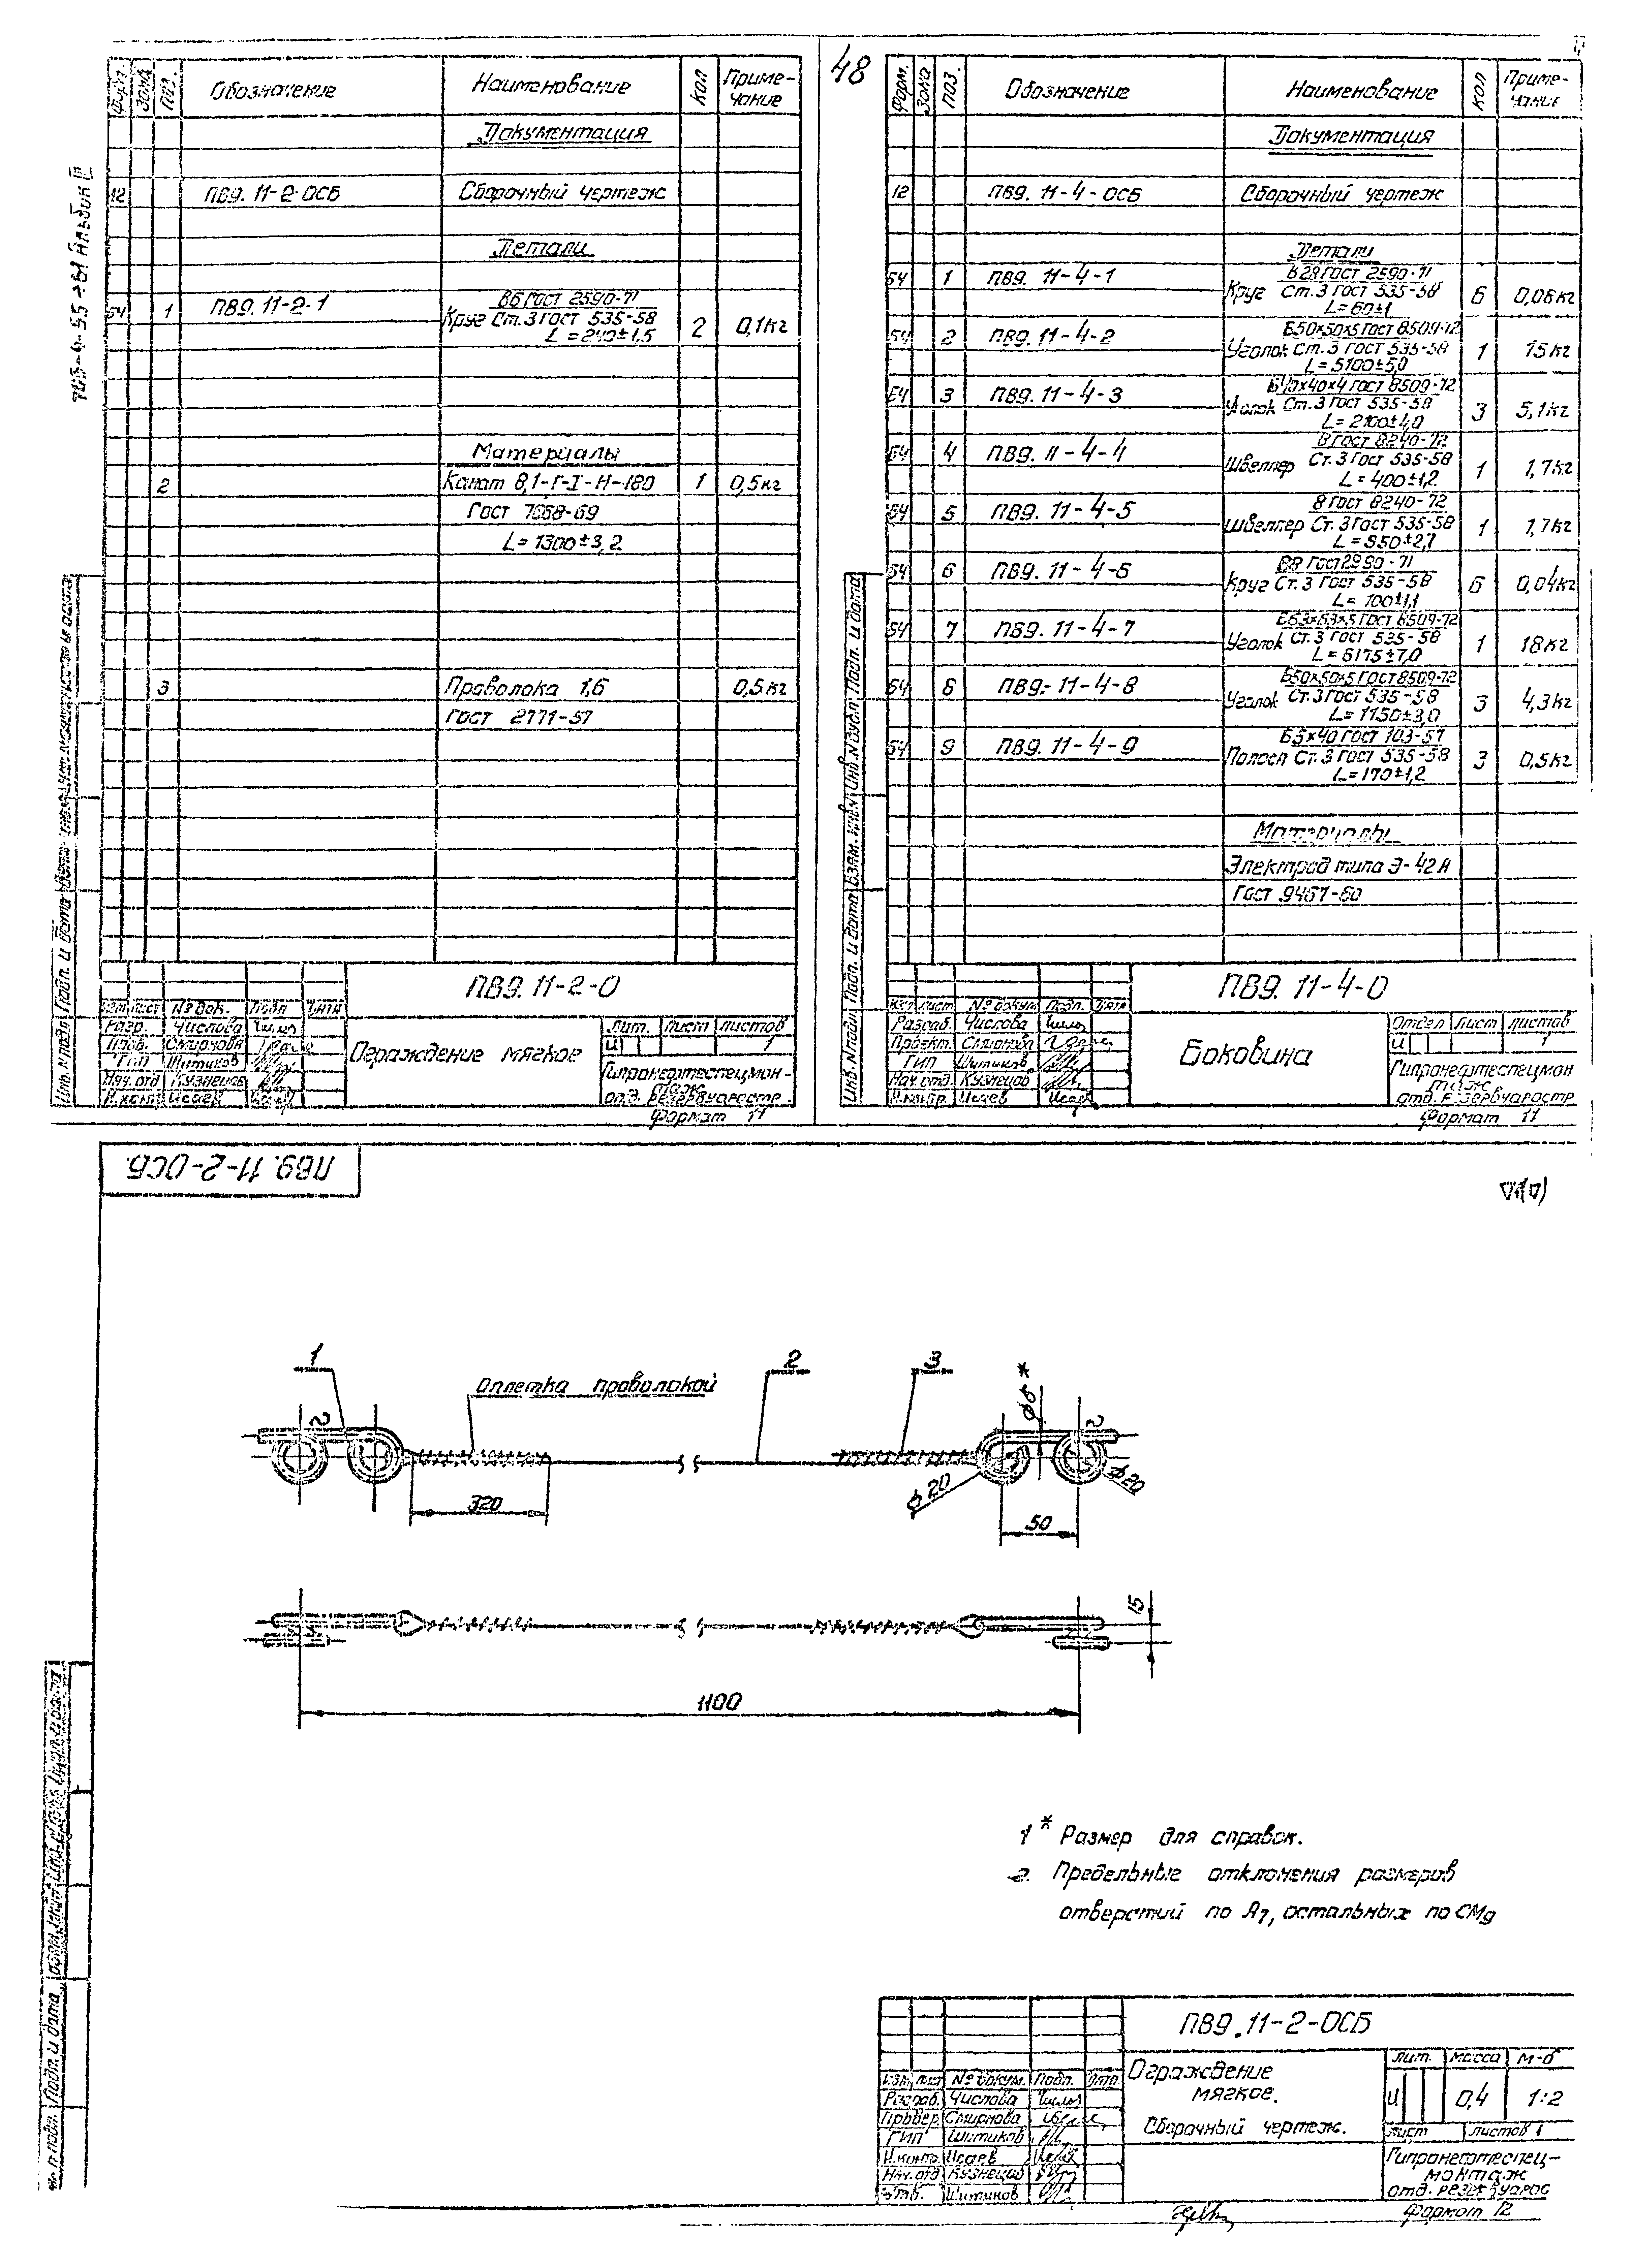 48
Обозначение Наименование Кол Приме-
чание
Документация
12 ПВ9. 11-2-ОСБ Сборочный чертеж
Детали
БЧ 1 ПВ9. 11-2-1 В6 ГОСТ 2590-71
Круг Ст. 3 ГОСТ 535-58
L = 240±1,5 2 0,1кг
Материалы
2 Канат 8,1-Г-I-Н-180 1 0,5кг
ГОСТ 7668-69
L = 1300±3,2
3 Проволока 1,6 0,5кг
ГОСТ 2771-57
ПВ9. 11-2-0
Изм лист № док. Подп Дата
Разр. Числова
Пров. Смирнова
ГИП Шитиков
Нач. отд Кузнецов
Н.конт Исаев
Ограждение мягкое
Лит. Лист Листов
И 1
Гипронефтеспецмон-
таж
отд. резервуаростр.
Формат 11
Форм. Зона Поз. Обозначение Наименование Кол Приме-
чание
Документация
12 ПВ9. 11-4-ОСБ Сборочный чертеж
Детали
БЧ 1 ПВ9. 11-4-1 В28 ГОСТ 2590-71
Круг Ст. 3 ГОСТ 535-58
L = 60±1 6 0,06кг
БЧ 2 ПВ9. 11-4-2 Б50×50×5 ГОСТ 8509-72
Уголок Ст. 3 ГОСТ 535-58
L = 5100±5,0 1 15кг
БЧ 3 ПВ9. 11-4-3 Б40×40×4 ГОСТ 8509-72
Уголок Ст. 3 ГОСТ 535-58
L = 2100±4,0 3 5,1кг
БЧ 4 ПВ9. 11-4-4 8 ГОСТ 8240-72
Швеллер Ст. 3 ГОСТ 535-58
L = 400±1,2 1 1,7кг
БЧ 5 ПВ9. 11-4-5 8 ГОСТ 8240-72
Швеллер Ст. 3 ГОСТ 535-58
L = 550±2,7 1 1,7кг
БЧ 6 ПВ9. 11-4-6 В8 ГОСТ 2990-71
Круг Ст. 3 ГОСТ 535-58
L = 100±1,1 6 0,04кг
БЧ 7 ПВ9. 11-4-7 Б63×63×5 ГОСТ 8509-72
Уголок Ст. 3 ГОСТ 535-58
L = 6175±7,0 1 18кг
БЧ 8 ПВ9. 11-4-8 Б50×50×5 ГОСТ 8509-72
Уголок Ст. 3 ГОСТ 535-58
L = 1150±3,0 3 4,3кг
БЧ 9 ПВ9. 11-4-9 Б5×40 ГОСТ 103-57
Полоса Ст. 3 ГОСТ 535-58
L = 170±1,2 3 0,5кг
Материалы
Электрод типа Э-42А
ГОСТ 9467-60
ПВ9. 11-4-0
Изм лист № докум Подп. Дата
Разраб. Числова
Проект. Смирнова
ГИП Шитиков
Нач отд. Кузнецов
Н.контр. Исаев
Боковина
Отдел Лист Листов
И 1
Гипронефтеспецмон
таж
отд. резервуаростр
Формат 11
ПВ9. 11-2-ОСБ.
1
Оплетка проволокой
2
3
⌀6*
320
⌀20
⌀20
50
15
1100
1* Размер для справок.
2. Предельные отклонения размеров
отверстий по А7, остальных по СМ9
ПВ9. 11-2-ОСБ
Изм лист № докум. Подп. Дата
Разраб. Числова
Провер. Смирнова
ГИП Шитиков
Н.контр. Исаев
Нач. отд Кузнецов
Утв. Шитиков
Ограждение
мягкое.
Сборочный чертеж.
Лит. Масса М-б
И 0,4 1:2
Лист Листов 1
Гипронефтеспец-
монтаж
отд. резервуарос
Формат 12